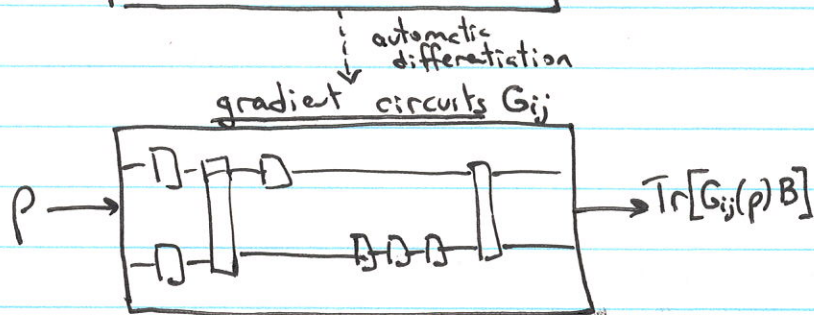 automatic
differentiation
gradient circuits Gij
ρ
Tr[Gij(ρ)B]